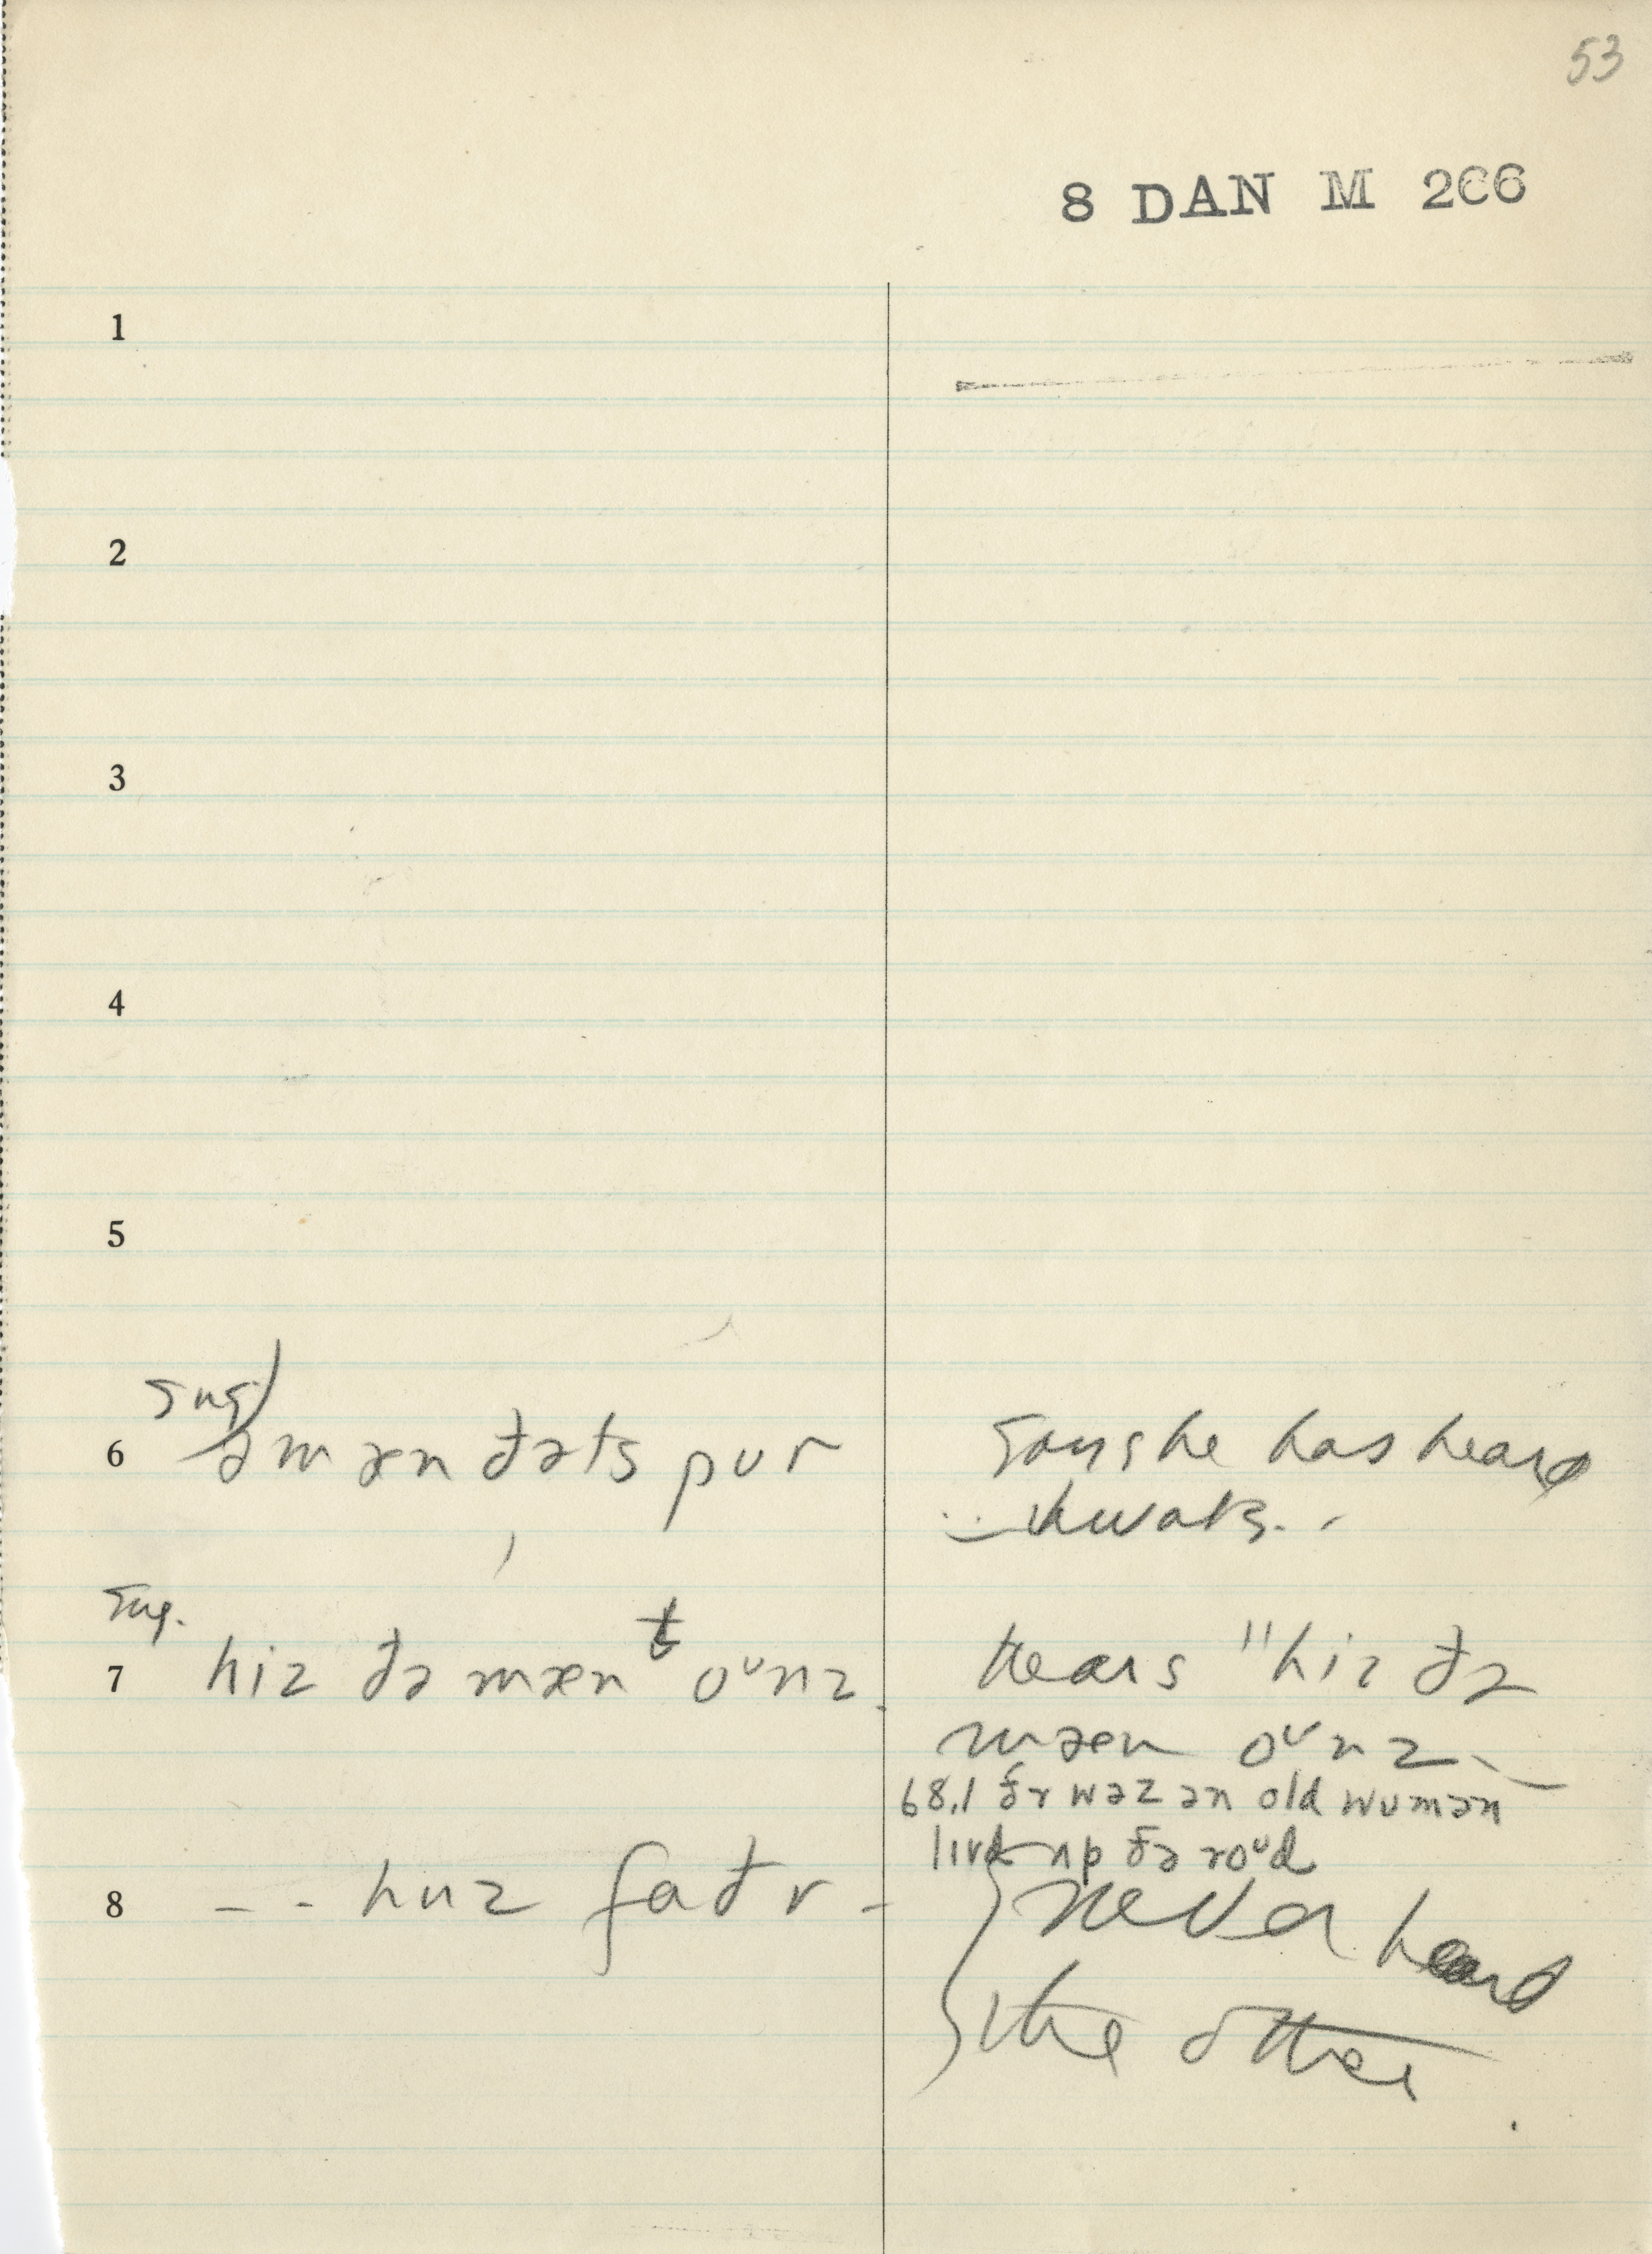 53
8 DAN M 266
1
2
3
4
5
sug)
6 ə mæn đəts pur
says he has heard
7 sug.
hiz đə mæn t oᵘnz.
hears "hiz đə
mæn oᵘnz
68.1 đr wəz ən old wumən
livd up đə roᵘd
8 - - huz fađr -
never heard
the other